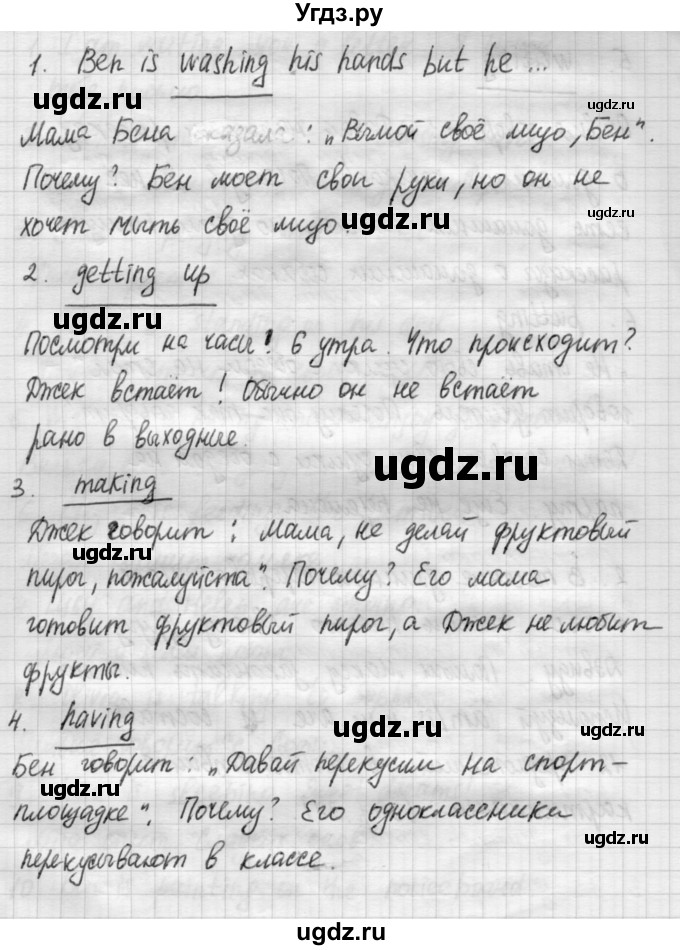 Угдз.ру
1. Ben is washing his hands but he ...
ugdz.ru
ugdz.ru
Мама Бена сказала: „Вымой своё лицо, Бен".
Почему? Бен моет свои руки, но он не
ugdz.ru
хочет мыть своё лицо.
ugdz.ru
2. getting up
ugdz.ru
Посмотри на часы! 6 утра. Что происходит?
Джек встаёт! Обычно он не встаёт
рано в выходные.
ugdz.ru
3. making
Джек говорит: Мама, не делай фруктовый
ugdz.ru
пирог, пожалуйста". Почему? Его мама
готовит фруктовый пирог, а Джек не любит
фрукты.
4. having
ugdz.ru
ugdz.ru
Бен говорит: „Давай перекусим на спорт-
ugdz.ru
площадке". Почему? Его одноклассники
ugdz.ru
перекусывают в классе.
ugdz.ru